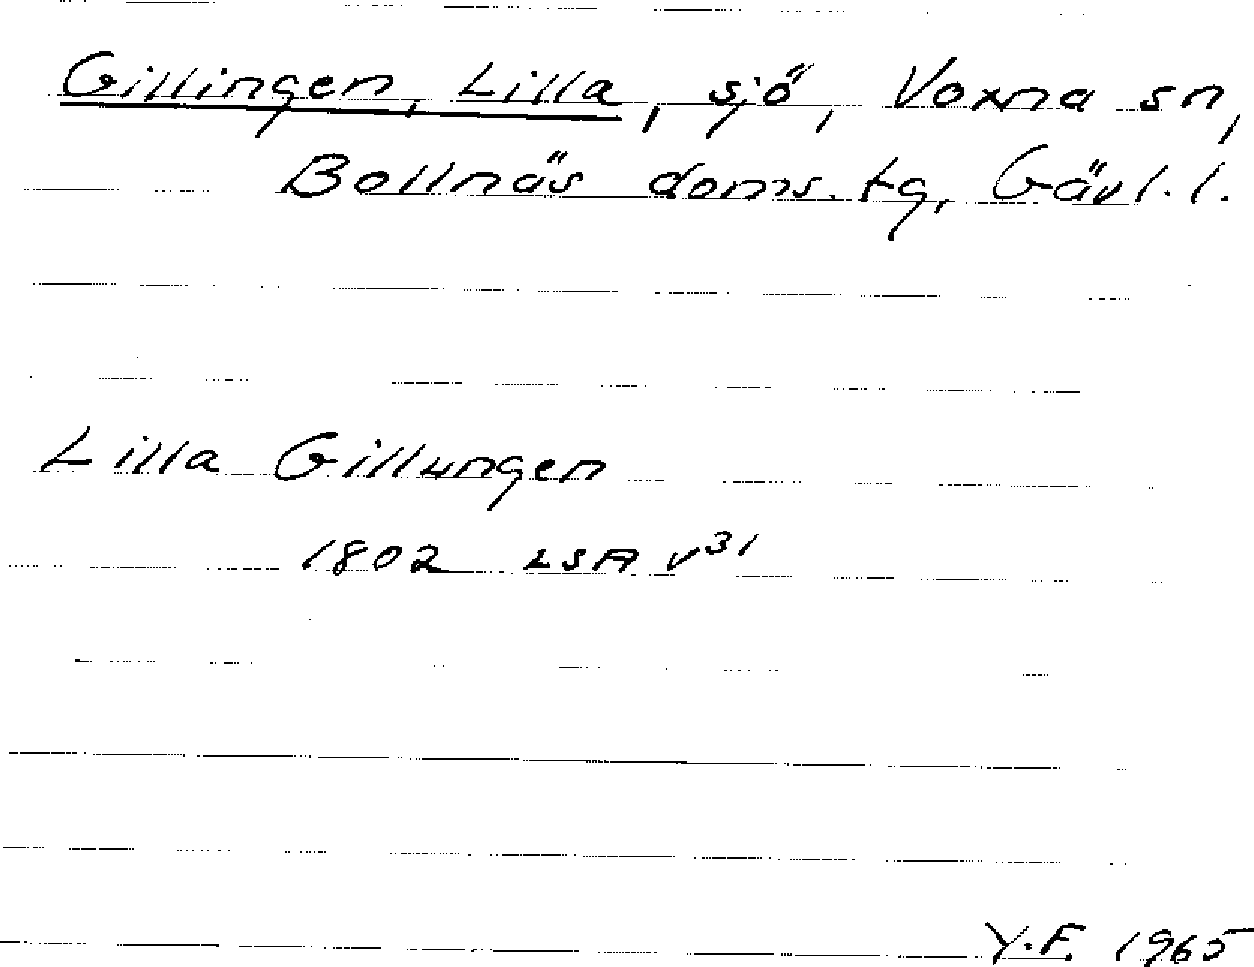 Gillingen, Lilla, sjö, Voxna sn,
Bollnäs doms. tg, Gävl. l.
Lilla Gillungen
1802 LSA V31
Y.F. 1965